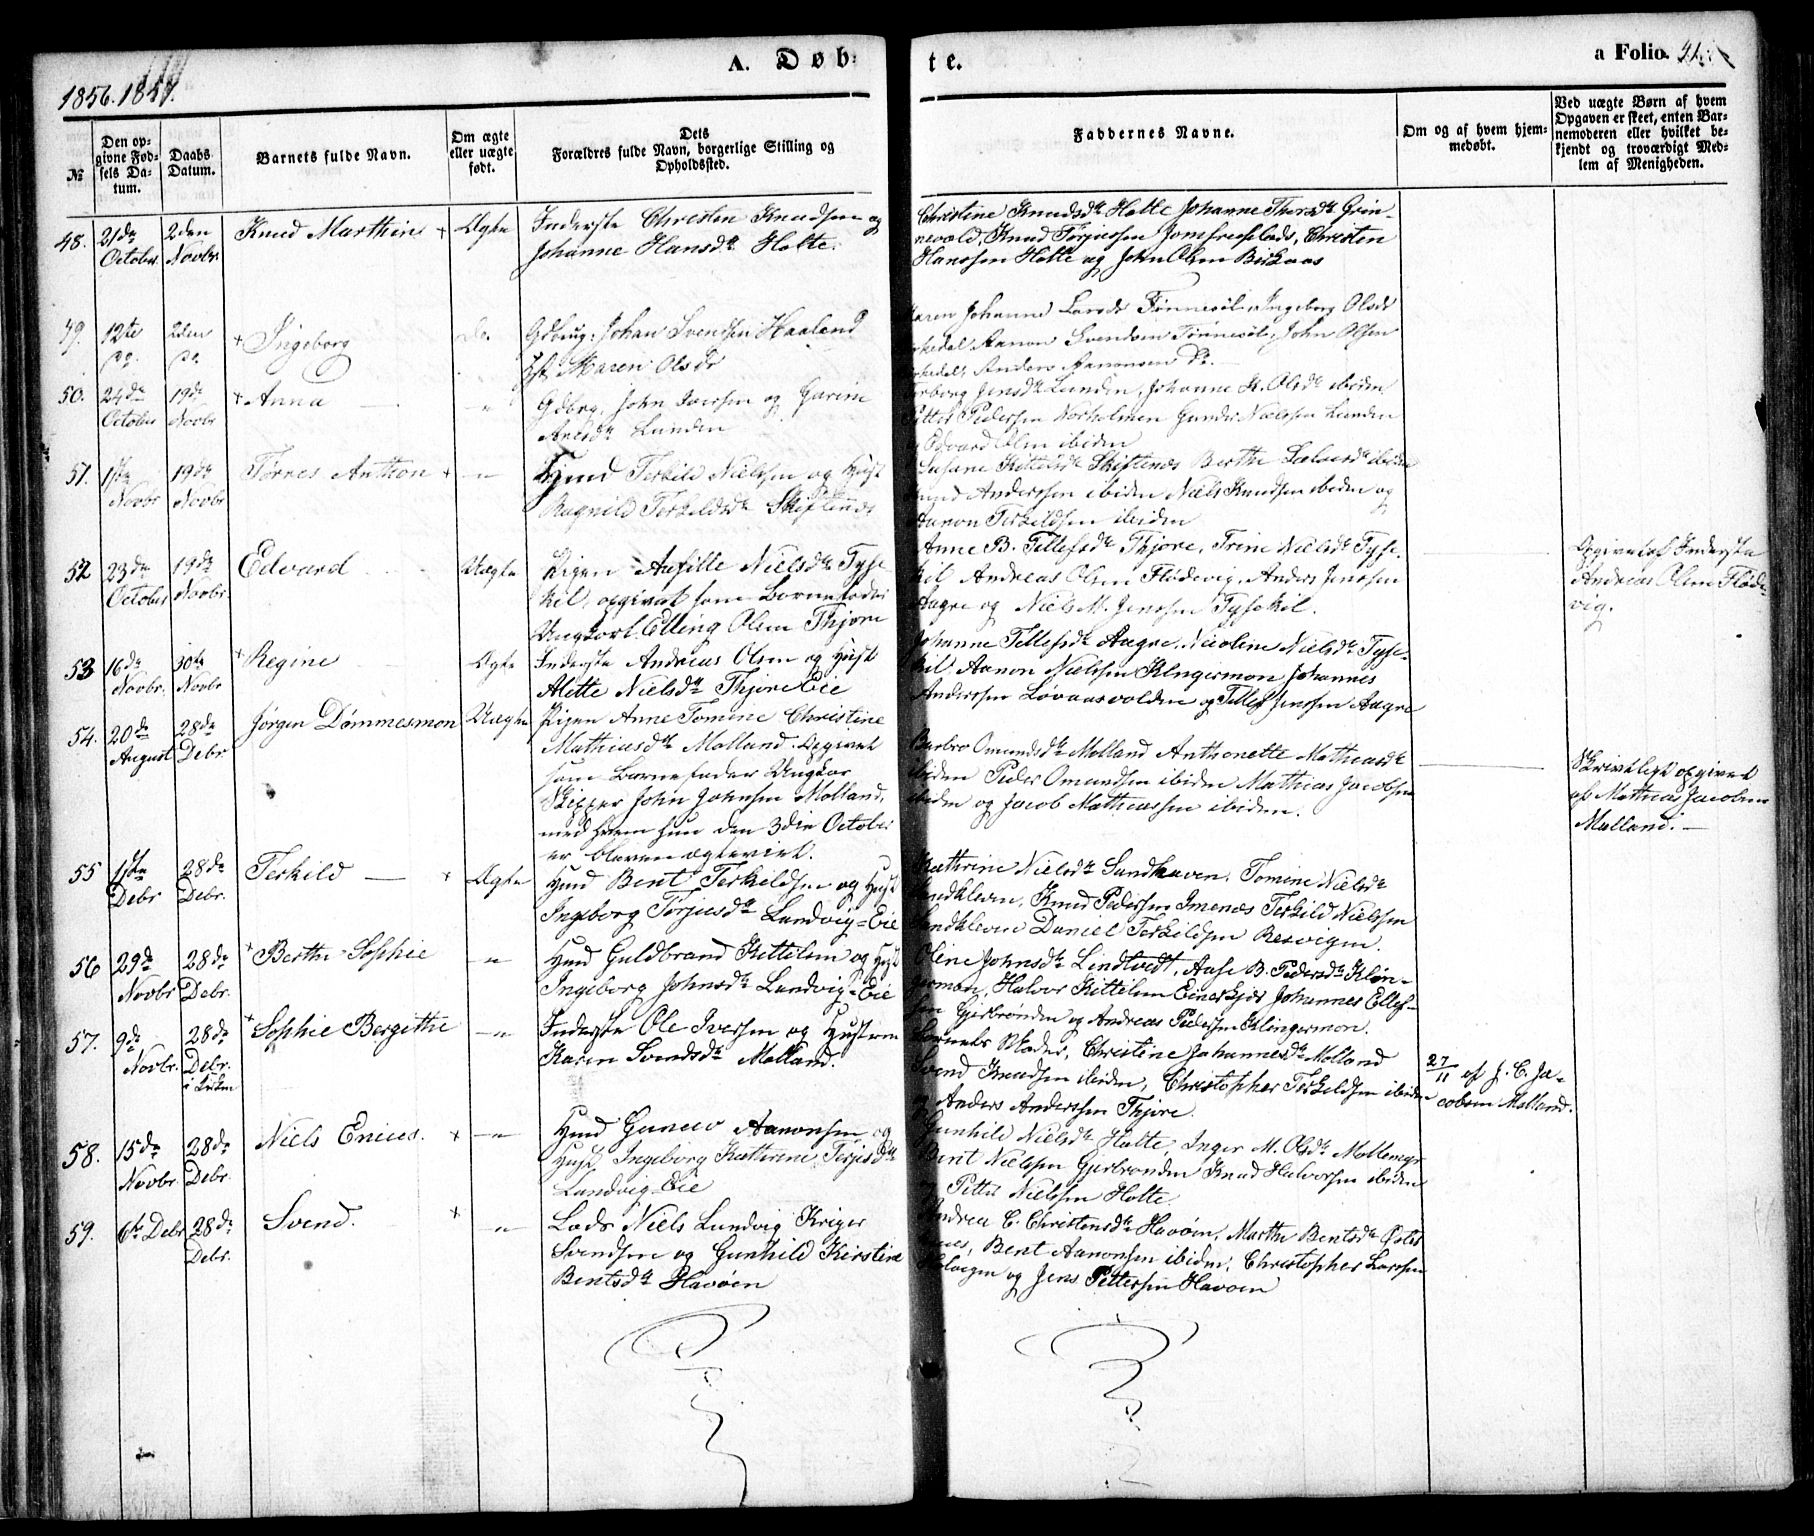 1856. 1857.
A. Døb:
te.
a Folio.
№
Den op-
givne Fød-
sels Da-
tum.
Daabs
Datum.
Barnets fulde Navn.
Om ægte
eller uægte
født.
Dets
Forældres fulde Navn, borgerlige Stilling og
Opholdssted.
Faddernes Navne.
Om og af hvem hjem-
medøbt.
Ved uægte Børn af hvem
Opgaven er skeet, enten Bar-
nemoderen eller hvilket be-
kjendt og troværdigt Med-
lem af Menigheden.
48.
21de
October
2den
Novbr.
Knud Marthin
Ægte
Inderste Christen Knudsen og
Johanne Hansdtr Holte.
Christine Knudsdtr Holte Johanne Thorsdtr Grin-
nevold, Knud Tørjussen Jomfrueslads, Christen
Hanssen Holte og John Olsen Birkaas
49.
12te
do.
2den
do.
Ingeborg
do
Gdbrug. Johan Svendsen Haaland
Hst. Maren Olsdr
Maren Johanne Larsdr Tønnesøl, Ingeborg Olsdr
Aanon Svendsen Tønnesøl, John Olsen
Anders Aanonsen do.
50.
24de
October
19de
Novbr
Anna
"
Gdbrg. John Iversen og Gurine
Anesdtr Lunden
Jensdtr Lunden, Johanne K. Olsdtr ibiden
Petter Pedersen Norholmen Gunder Nielsen Lunden
Edvard Olsen ibiden
51.
1ste
Novbr
19de
Novbr.
Tørnes Anthon
"
Hmd Terkild Nielsen og Hust
Ragnild Terkildsdtr Skiftenes
Susane Kittelsdtr Skiftenes Berthe Salvesdtr ibiden
Knud Anderssen ibiden Niels Knudsen ibiden og
Aanon Terkildsen ibiden
52
23de
October
19de
Novbr.
Edvard
Uægte
Pigen Asfille Nielsdtr Tyse-
kil, opgivet som Barnefader
Ungkarl Elling Olsen Thjøre
Anne B. Tellefsdtr Thjøre, Trine Nielsdtr Tyse-
kil Andreas Olsen Flødevig, Anders Jenssen
Aagre og Niels M. Jenssen Tysekil.
Opgivet af Inderste
Andreas Olsen Fløde-
vig.
53
16de
Novbr.
30te
Novbr
Regine
Ægte
Inderste Andreas Olsen og Hust
Alette Nielsdtr Thjøre Eie
Johanne Tellefsdtr Aagre, Nicoline Nielsdtr Tyse-
kil Aanon Nielsen Klingermon Johannes
Anderssen Løvaasvolden og Tellef Jenssen Aagre
54.
20de
August
28de
Debr.
Jørgen Dømmesmon
Uægte
Pigen Anne Tomine Christine
Mathiasdtr Molland. Opgivet
som Barnefader Ungkar
Skipper John Johnsen Molland,
med hvem hun den 3die October
er bleven ægteviet.
Barbro Omundsdtr Molland Anthonette Mathiasdtr
ibiden Peder Omundsen ibiden Mathias Jacobsen
ibiden og Jacob Mathiassen ibiden.
Skriftligt opgivet
af Mathias Jacobsen
Molland. —
55
1ste
Debr
28de
Debr.
Terkild —
Ægte
Hmd Bent Terkildsen og Hust
Ingeborg Tørjusdtr Landvig=Eie
Kathrine Nielsdtr Sandkleven, Tomine Nielsdtr
Sandkleven, Knud Pedersen Imenes Terkild Nielsen
Sandkleven Daniel Terkildsen Resvigen.
56
29de
Novbr
28de
Debr.
Berthe Sophie
"
Hmd Guldbrand Kittelsen og Hust
Ingeborg Johnsdtr Landvig=Eie
Oline Johnsdtr Lindtvedt, Aase B. Pedersdtr Klin-
germon, Halvor Kittelsen Eineskjær Johannes Ellef-
sen Gjerbronden og Andreas Pedersen Klingermon.
57.
9de
Novbr.
28de
Debr.
i Kirken
Sophie Bergithe
"
Inderste Ole Iversen og Hustrue
Karen Svendsdtr Molland.
Barnets Moder, Christine Johannesdtr Molland
Svend Knudsen ibiden, Christopher Terkildsen ibiden
og Anders Anderssen Thjøre.
27/11 af J. C. Ja-
cobsen Molland.
58.
15de
Novbr.
28de
Debr.
Niels Enius.
"
Hmd Gunuv Aanonsen og
Hust, Ingeborg Kathrine Terjesdtr
Landvig Eie
Gunhild Nielsdtr Holte, Inger M. Olsdtr Mollemyr
Bent Nielsen Gjerbronden Knud Halvorsen ibiden
og Petter Nielsen Holte
59.
6te Debr
28de
Debr.
Svend.
"
Lods Niels Lundvig Kriger
Svendsen og Gunhild Kirstine
Bentsdtr Havøen
Andrea C. Christensdtr Havøen, Marthe Bentsdtr Østre
Bent Aanonsen ibiden, Christopher Larssen
og Jens Pettersen Havøen